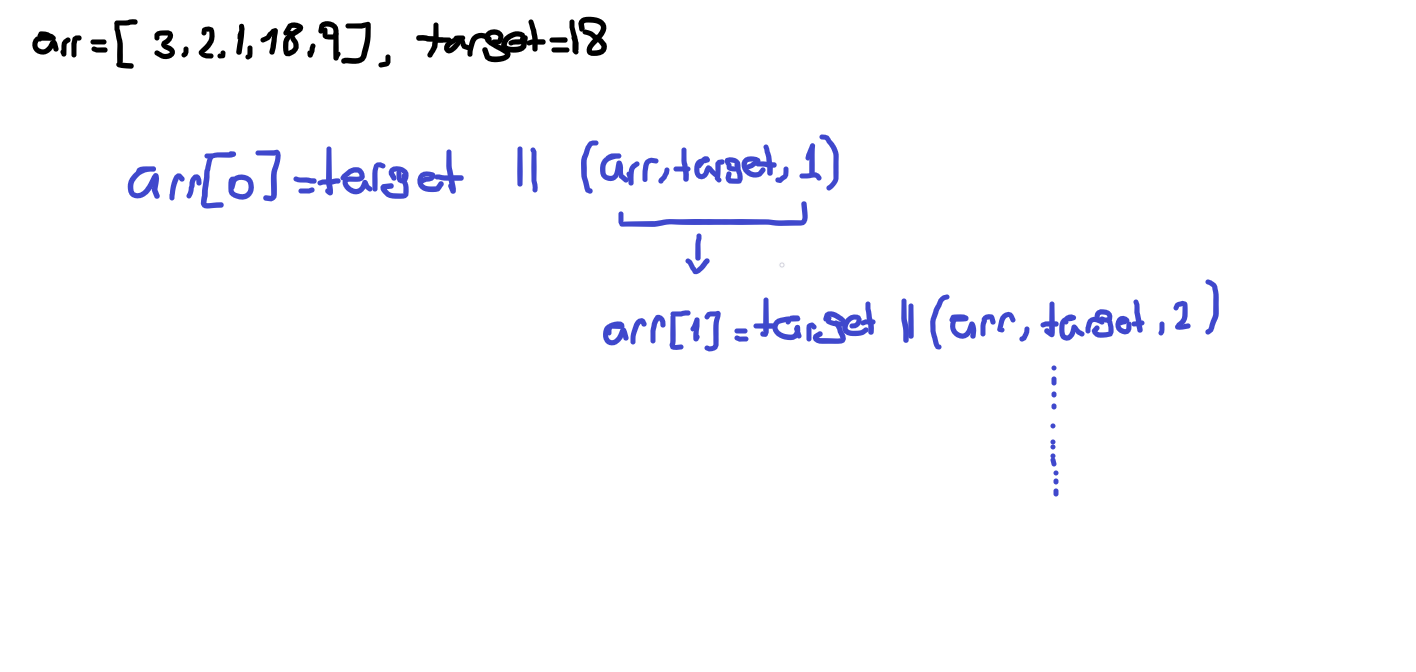 arr = [ 3, 2, 1, 18, 9 ], target = 18
arr[0] = target || (arr, target, 1)
arr[1] = target || (arr, target, 2)